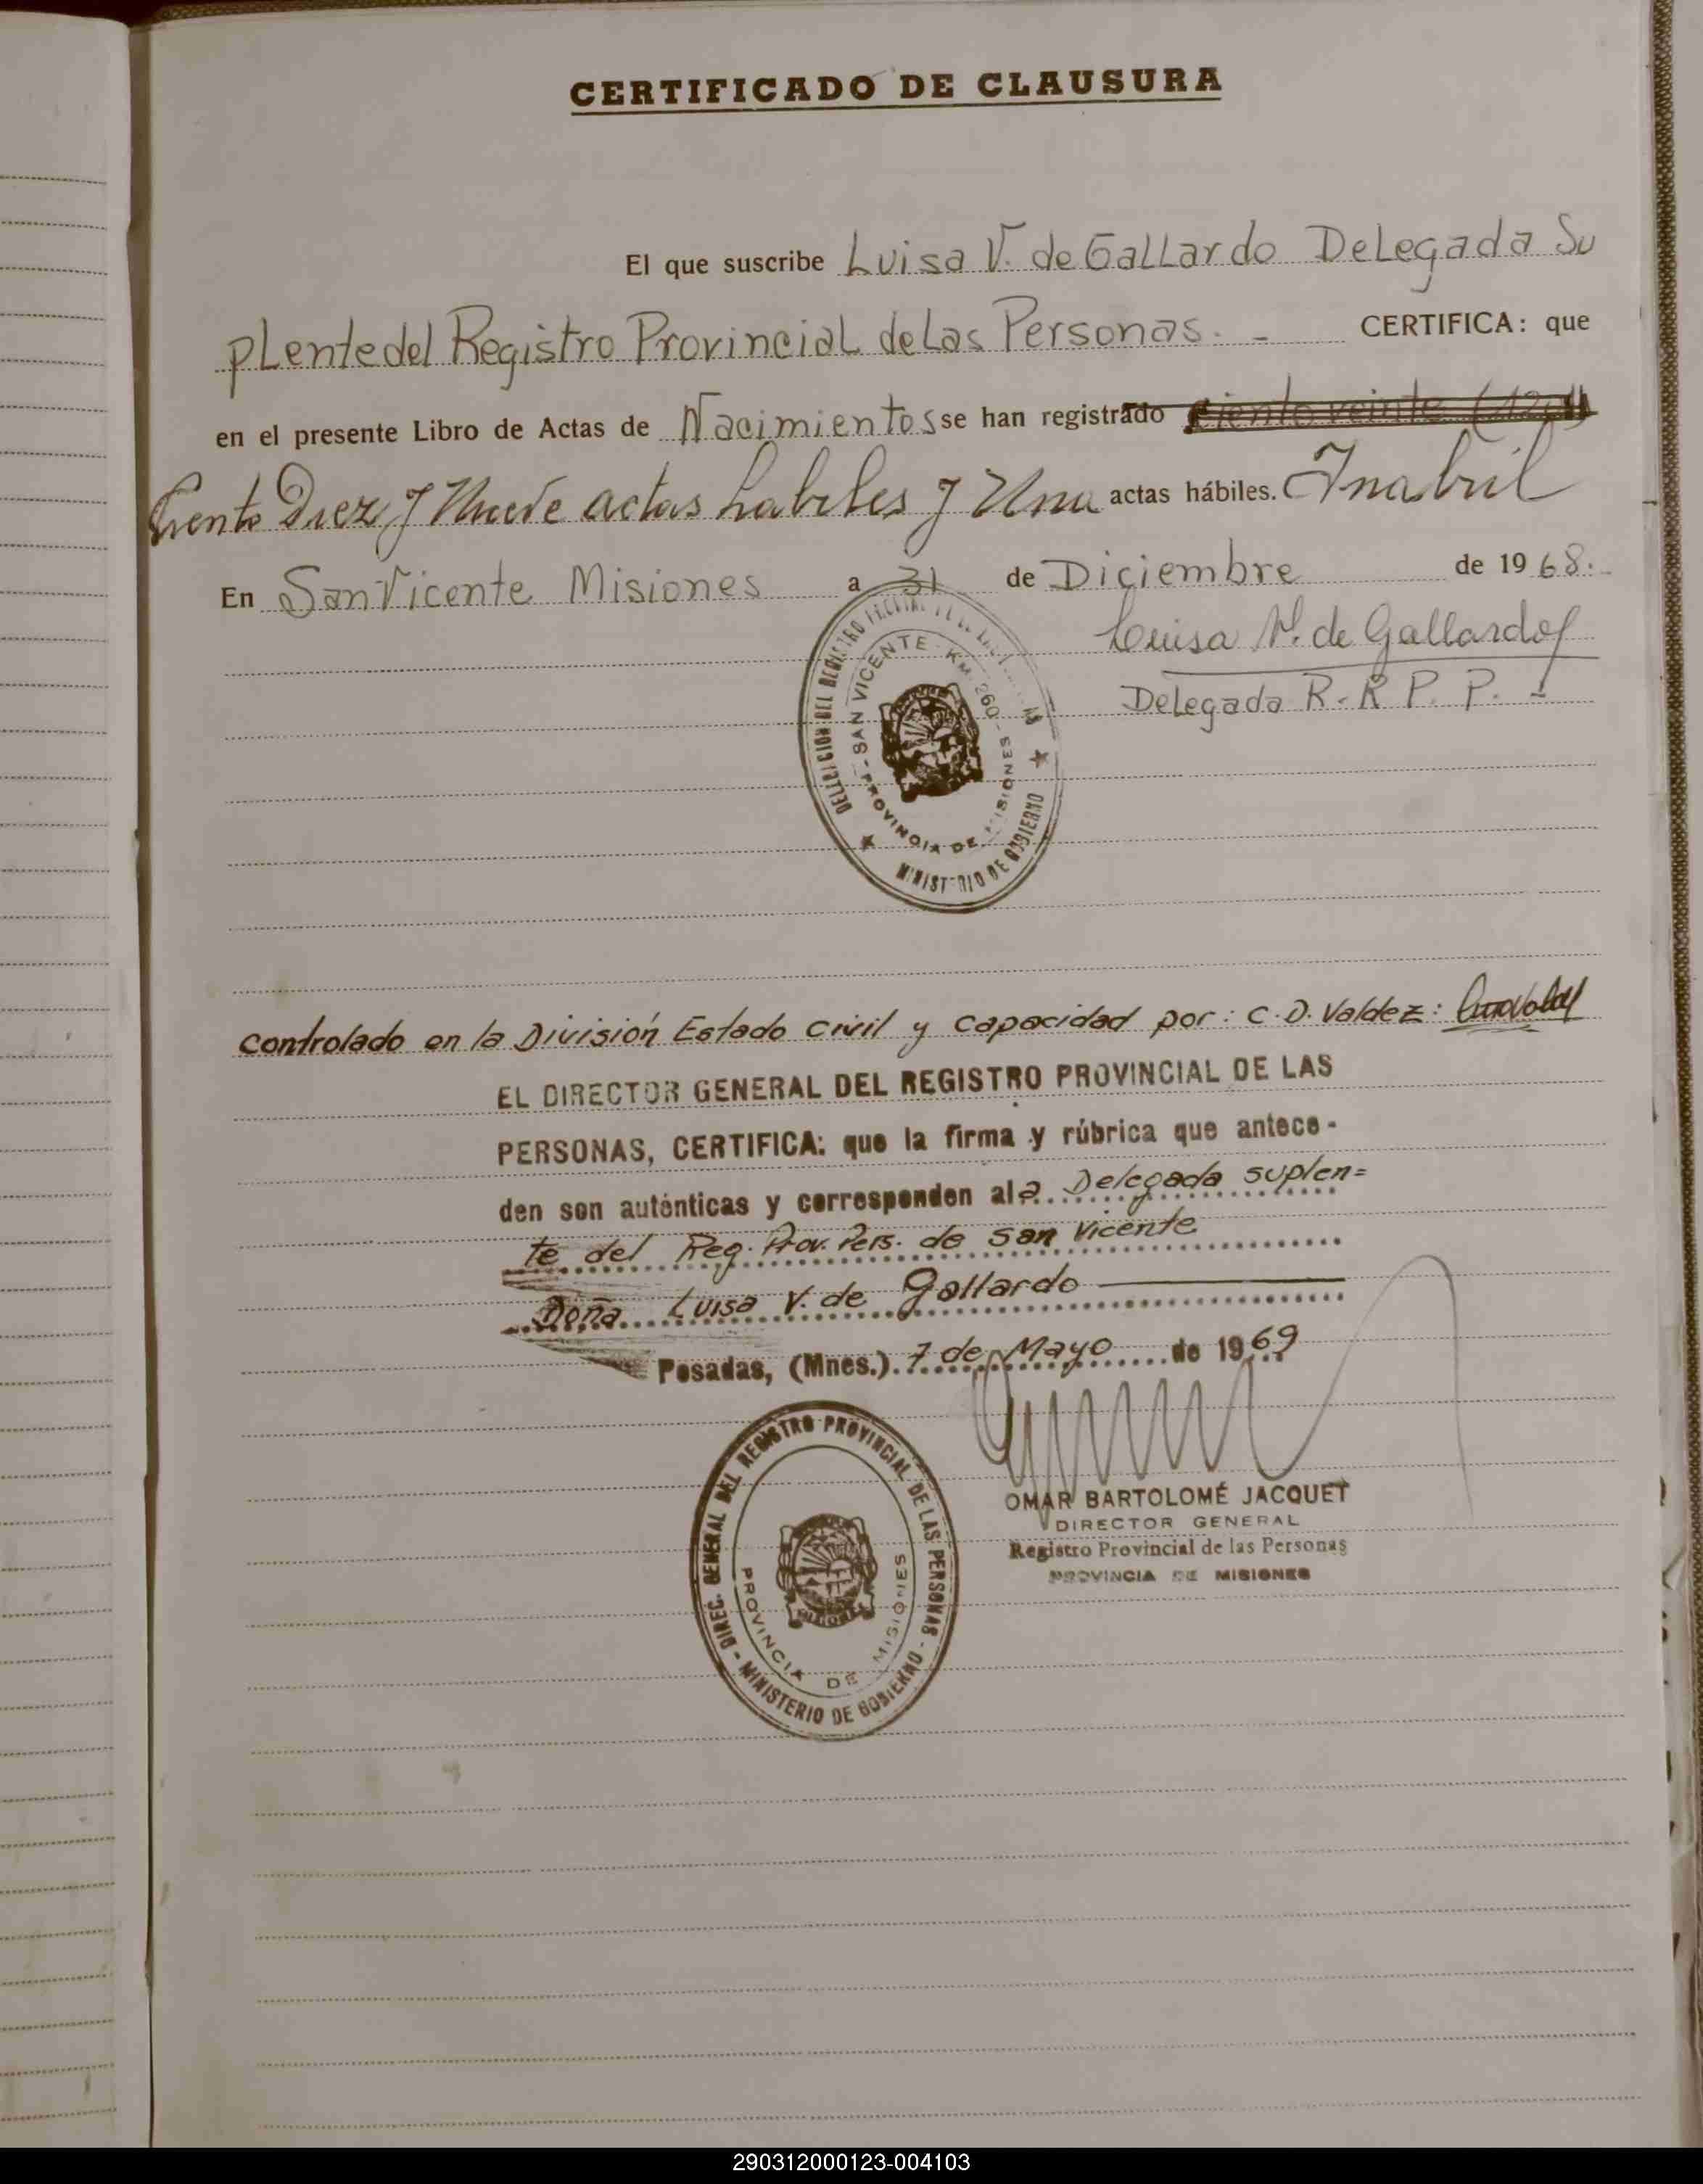 CERTIFICADO DE CLAUSURA
El que suscribe Luisa V. de Gallardo Delegada Su
plente del Registro Provincial de Las Personas. - CERTIFICA: que
en el presente Libro de Actas de Nacimientos se han registrado ciento veinte (120)
Ciento Diez y Nueve actas habiles y Una actas hábiles. Inabril
En San Vicente Misiones a 31 de Diciembre de 1968.
Luisa V. de Gallardo
Delegada R. R P. P. -
DELEGACION DEL REGISTRO
SAN VICENTE - KM. 260 -
PROVINCIA DE MISIONES
MINISTERIO DE GOBIERNO
Controlado en la División Estado Civil y Capacidad por: C. D. Valdez:
EL DIRECTOR GENERAL DEL REGISTRO PROVINCIAL DE LAS
PERSONAS, CERTIFICA: que la firma y rúbrica que antece-
den son auténticas y corresponden al a Delegada suplen=
te del Reg. Prov. Pers. de San Vicente
Doña Luisa V. de Gallardo
Posadas, (Mnes.) 7 de Mayo de 1969
OMAR BARTOLOMÉ JACQUET
DIRECTOR GENERAL
Registro Provincial de las Personas
PROVINCIA DE MISIONES
DIREC. GENERAL DEL REGISTRO PROVINCIAL DE LAS PERSONAS
- MINISTERIO DE GOBIERNO -
PROVINCIA DE MISIONES
290312000123-004103